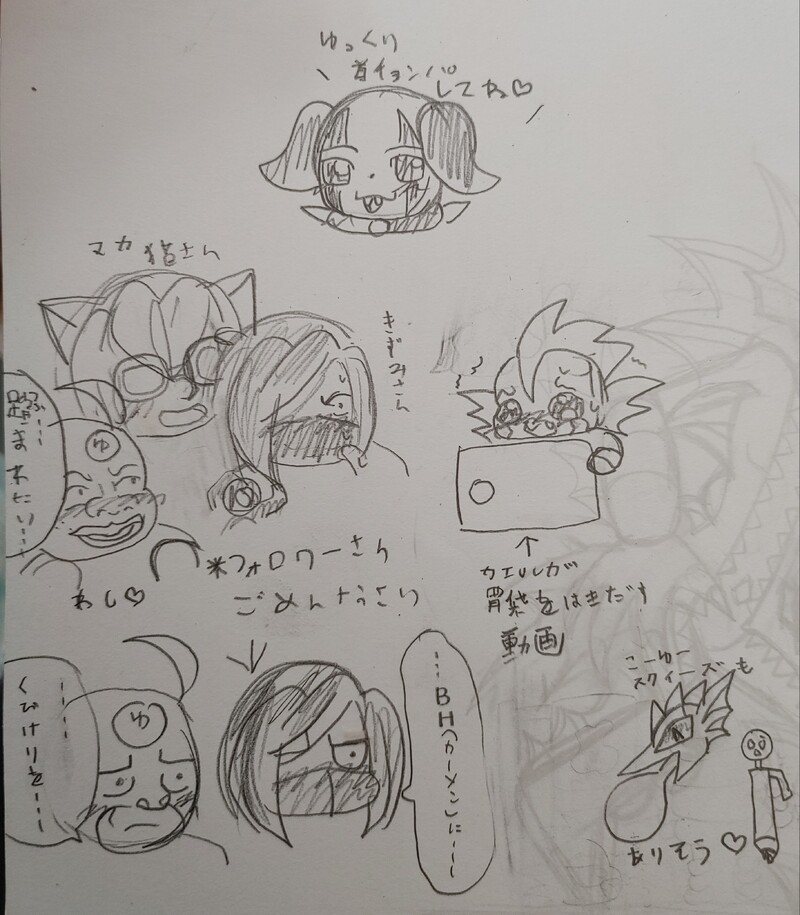 ゆっくり
首チョンパ
してね♡
マカ猫さん
きずみさん
踏まれたい……
ゆ
わし♡
※フォロワーさん
ごめんなさい
↑
カエルが
胃袋をはきだす
動画
こーゆー
スクイーズも
ありそう♡
……BH(カーメン)に……
ゆ
……くびけりを……